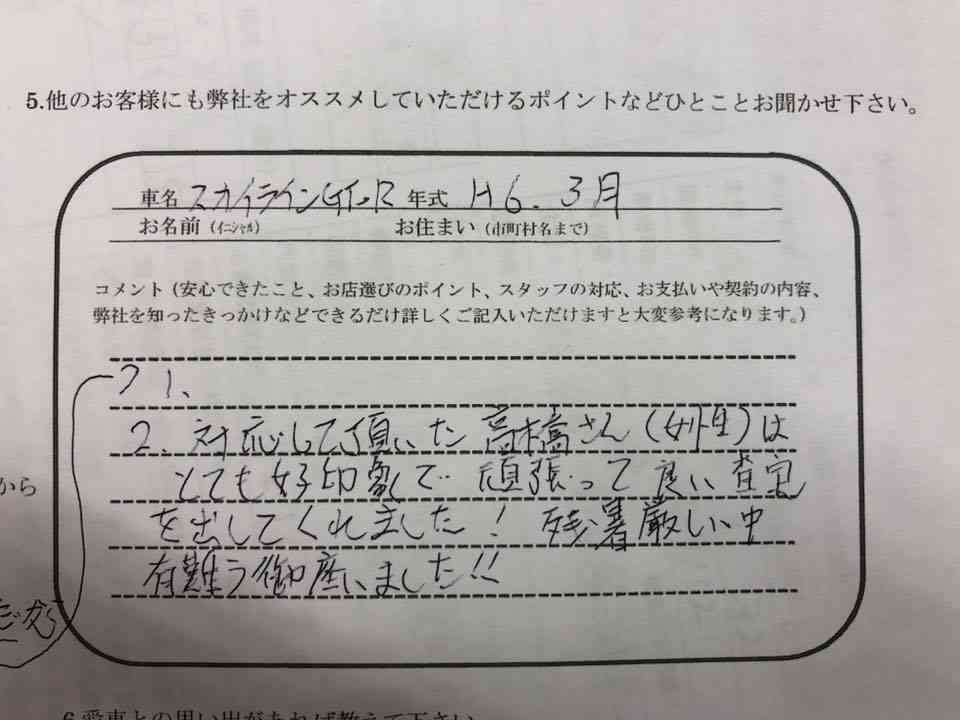 5.他のお客様にも弊社をオススメしていただけるポイントなどひとことお聞かせ下さい。
車名 スカイラインGT-R 年式 H6.3月
お名前(イニシャル) お住まい(市町村名まで)
コメント(安心できたこと、お店選びのポイント、スタッフの対応、お支払いや契約の内容、
弊社を知ったきっかけなどできるだけ詳しくご記入いただけますと大変参考になります。)
1、
2、対応して頂いた高橋さん(女性)は
とても好印象で頑張って良い査定
から
を出してくれました!残暑厳しい中
有難う御座いました!!
だから
6.愛車との思い出があれば教えて下さい